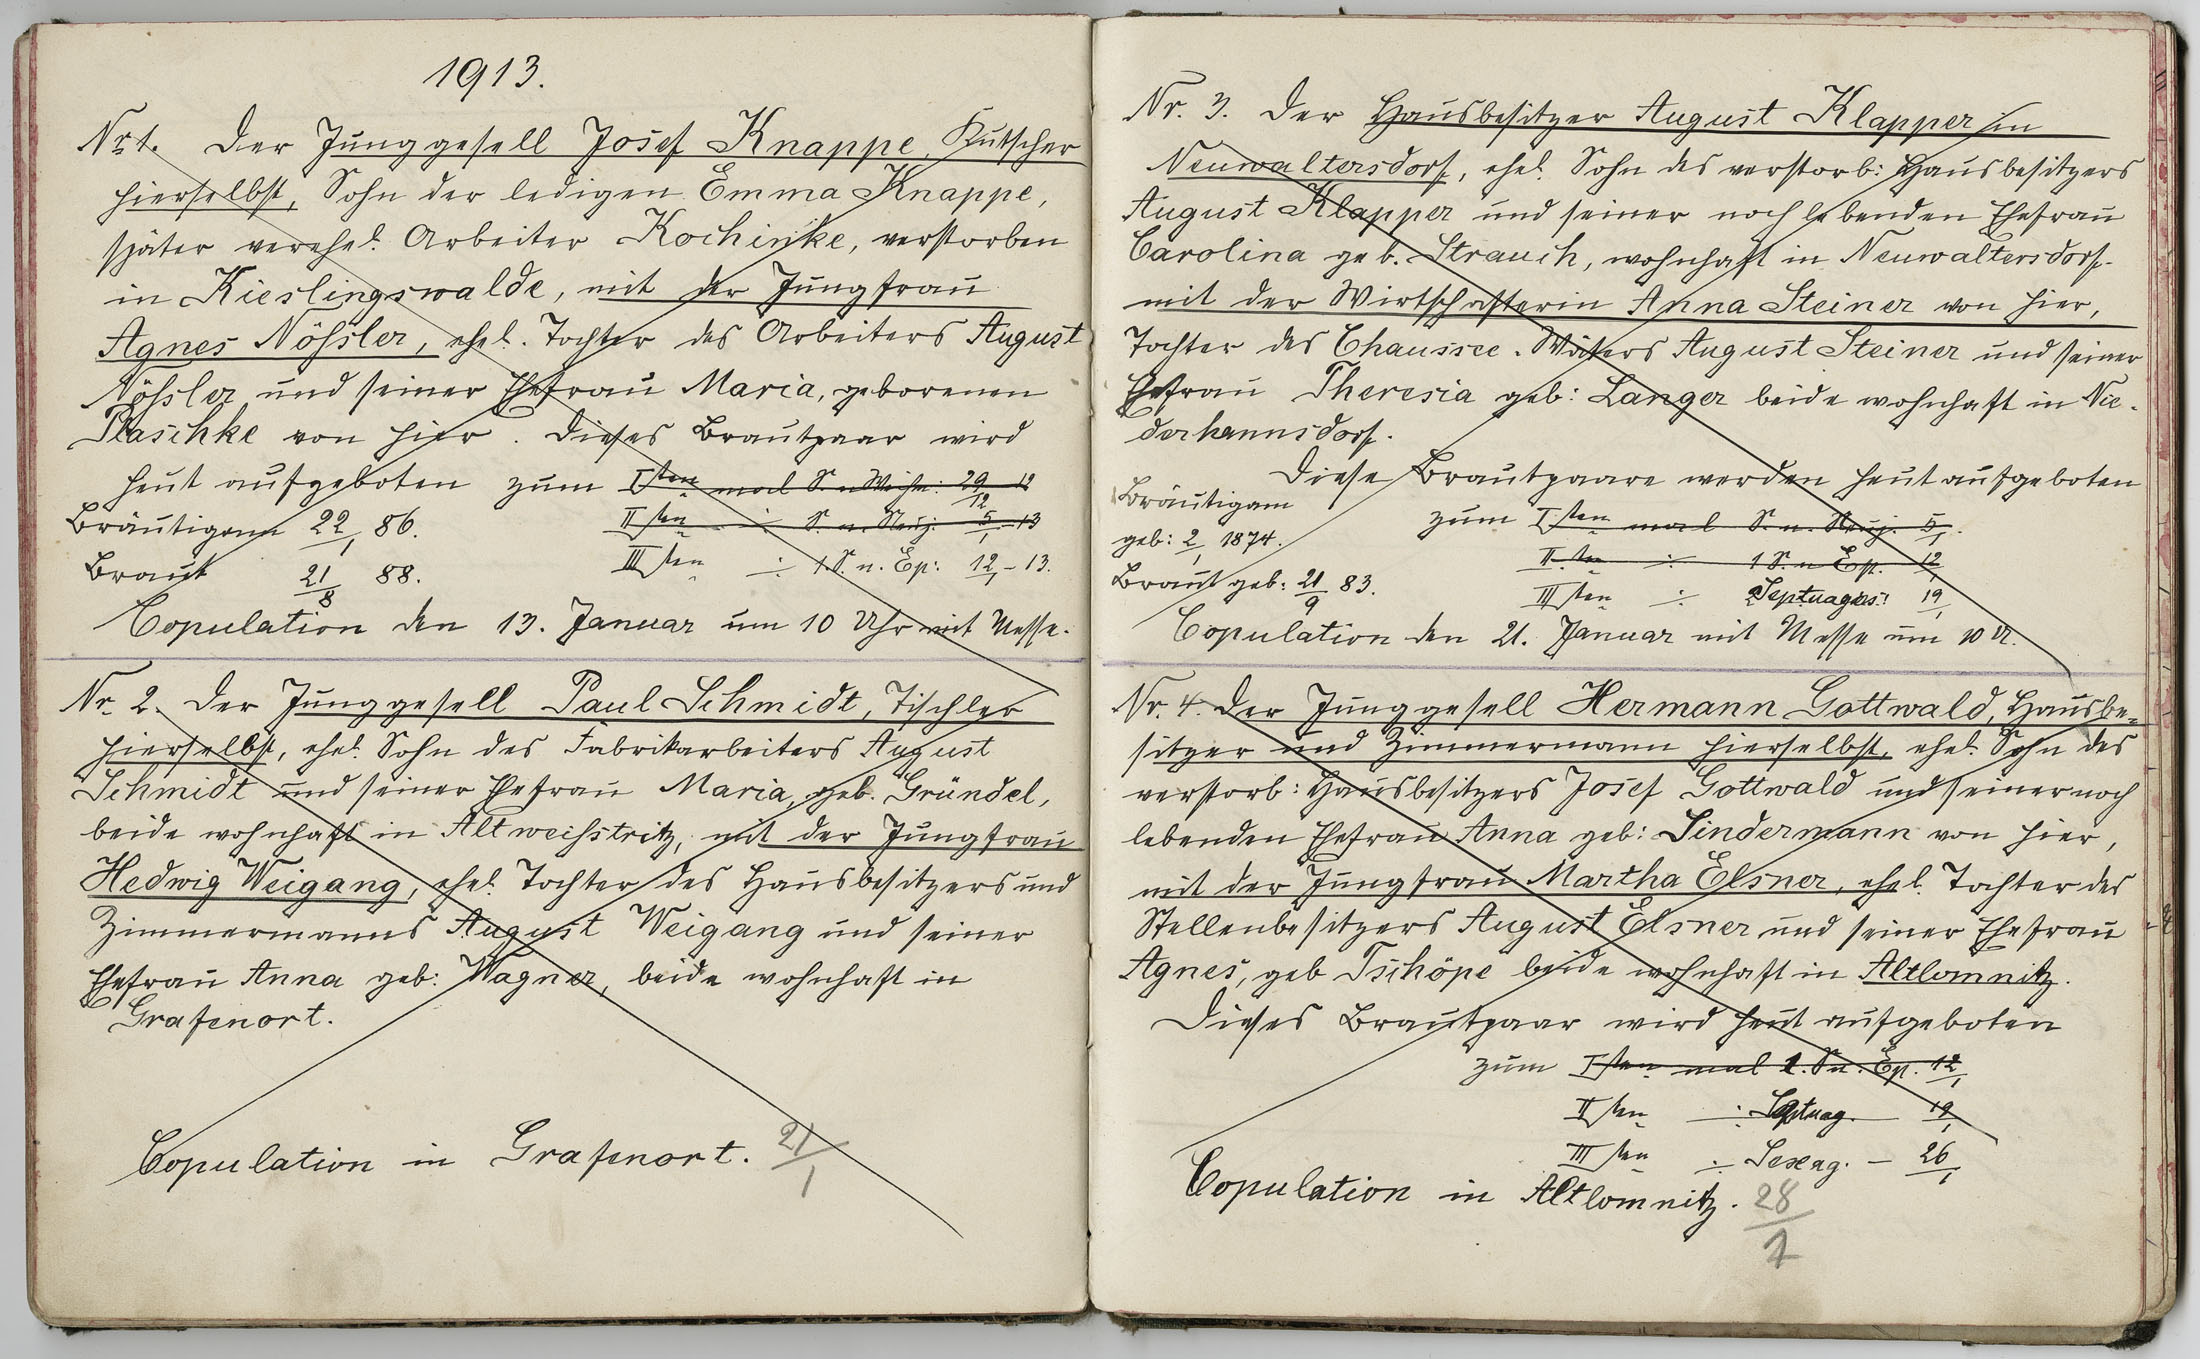 1913.
Nr 1. Der Junggesell Josef Knappe, Kutscher
hierselbst, Sohn der ledigen Emma Knappe,
später verehel. Arbeiter Kochinke, verstorben
in Kieslingswalde, mit der Jungfrau
Agnes Nößler, ehel. Tochter des Arbeiters August
Nößler und seiner Ehefrau Maria, geborenen
Plaschke von hier. Dieses Brautpaar wird
heut aufgeboten zum Isten mal S. n. Weihn: 29/12 12
Bräutigam 22/1 86. IIsten ÷ S. n. Neuj. 5/1 - 13
Braut 21/8 88. IIIsten ÷ 1. S. n. Ep: 12/1 - 13.
Copulation den 13. Januar um 10 Uhr mit Messe.
Nr. 2. Der Junggesell Paul Schmidt, Tischler
hierselbst, ehel. Sohn des Fabrikarbeiters August
Schmidt und seiner Ehefrau Maria, geb. Gründel,
beide wohnhaft in Altweistritz, mit der Jungfrau
Hedwig Weigang, ehel. Tochter des Hausbesitzers und
Zimmermanns August Weigang und seiner
Ehefrau Anna geb: Wagner, beide wohnhaft in
Grafenort.
Copulation in Grafenort. 21/1
Nr. 3. Der Hausbesitzer August Klapper in
Neuwaltersdorf, ehel. Sohn des verstorb: Hausbesitzers
August Klapper und seiner noch lebenden Ehefrau
Carolina geb. Strauch, wohnhaft in Neuwaltersdorf.
mit der Wirtschafterin Anna Steiner von hier,
Tochter des Chaussee-Wäters August Steiner und seiner
Ehefrau Theresia geb: Langer beide wohnhaft in Nie-
derhannsdorf.
Diese Brautpaare werden heut aufgeboten
Bräutigam zum Isten mal S. n. Neuj. 5/1.
geb: 2/1 1874. IIsten ÷ 1 S. n. Ep. 12/1
Braut geb: 21/9 83. IIIsten ÷ Septuages: 19/1
Copulation den 21. Januar mit Messe um 10 U.
Nr. 4. Der Junggesell Hermann Gottwald, Hausbe-
sitzer und Zimmermann hierselbst, ehel. Sohn des
verstorb: Hausbesitzers Josef Gottwald und seiner noch
lebenden Ehefrau Anna geb: Lindermann von hier,
mit der Jungfrau Martha Elsner, ehel. Tochter des
Stellenbesitzers August Elsner und seiner Ehefrau
Agnes, geb Tschöpe beide wohnhaft in Altlomnitz.
Dieses Brautpaar wird heut aufgeboten
zum Isten mal 1. S. n. Ep. 12/1
IIsten ÷ Septuag. 19/1
IIIsten ÷ Sexag. - 26/1
Copulation in Altlomnitz. 28/1